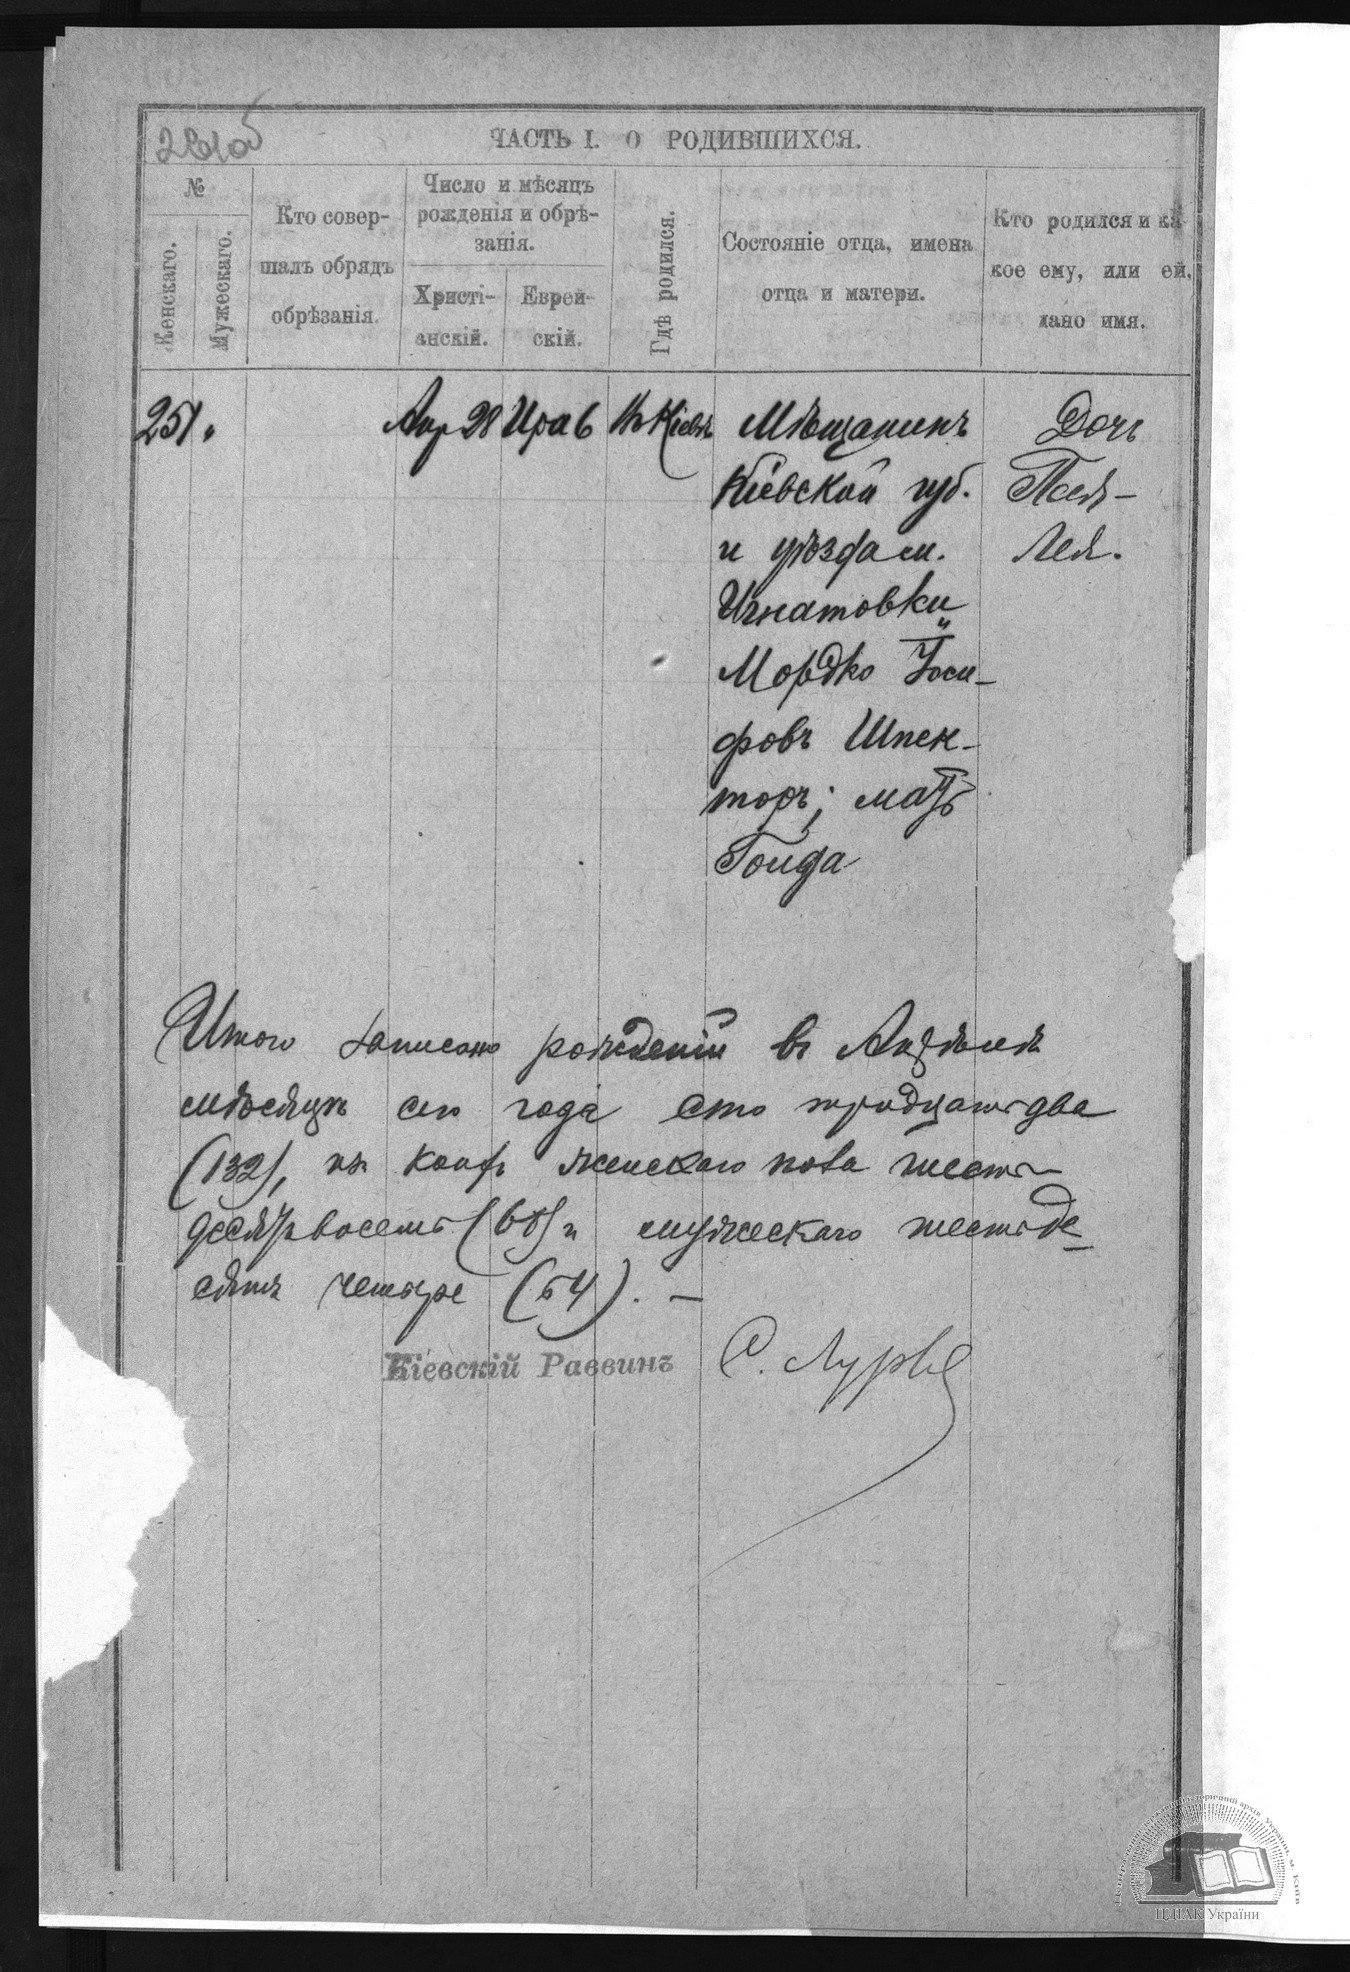 ЧАСТЬ I. О РОДИВШИХСЯ.
№
Женскаго.
Мужескаго.
Кто совер-
шалъ обрядъ
обрѣзанія.
Число и мѣсяцъ
рожденія и обрѣ-
занія.
Христі-
анскій.
Еврей-
скій.
Гдѣ родился.
Состояніе отца, имена
отца и матери.
Кто родился и ка
кое ему, или ей,
дано имя.
251. Апр 28 Ира 6 въ Кіевѣ Мѣщанинъ Дочь
Кіевской губ.
и уѣзда м. Лея.
Игнатовки
Мордко Іоси-
фовъ Шпек-
торъ; мать
Гольда
Итого записано рожденій въ Апрѣлѣ
мѣсяцѣ сего года сто тридцать два
(132), изъ коихъ женскаго пола шесть-
десятъ восемь (68) и мужескаго шестьде
сятъ четыре (64). —
Кіевскій Раввинъ С. Лурье
ЦДІАК України